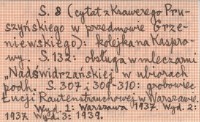 S. 8 (cytat z Ksawerego Pru-
szyńskiego w przedmowie Grze-
niewskiego): kolejka na Kaspro-
wy. S. 132: obsługa w mleczarni
"Nadświdrzańskiej" w ubiorach
podh. S. 307; 309-310: grobowiec
Łucji Rautenstrauchowej w Warszawie.
Wyd. 1: Warszawa 1937. Wyd. 2:
1937. Wyd. 3: 1939.